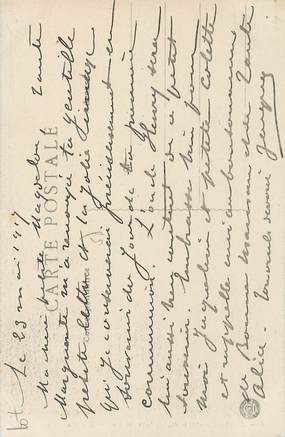 CARTE POSTALE
Le 23 mai 1917
Ma chère petite Magdelon Tante
Marguerite m'a renvoyé ta gentille
petite lettre et la jolie
que je conserverai précieusement en
souvenir du jour de ta première
communion. L'oncle Henry sera
lui aussi très content de ce petit
souvenir. Embrasse bien pour
moi Jacqueline et petite Colette
et rappelle moi au bon souvenir
de Bonne Maman et de Tante
Alice.